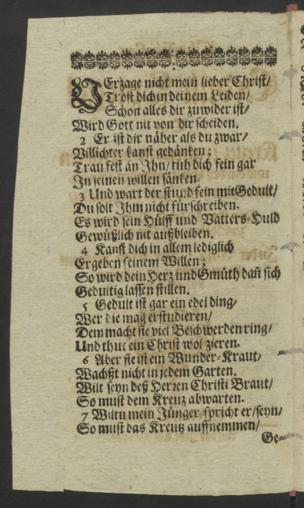 VErzage nicht mein lieber Christ/
Tröst dich in deinem Leiden/
Schon alles dir zuwider ist/
Wird Gott nit von dir scheiden.
2 Er ist dir näher als du zwar/
Villichter kanst gedäncken:
Trau fest an Jhn/ rüh dich fein gar
Jn seinen willen säncken.
3 Und wart der stund fein mit Gedult/
Du solt Jhm nicht fürschreiben.
Es wird sein Hülff und Vatters-Huld
Gewüßlich nit außbleiben.
4 Kanst dich in allem lediglich
Ergeben seinem Willen;
So wird dein Herz und Gmüth dan̄ sich
Gedultig lassen stillen.
5 Gedult ist gar ein edel ding/
Wer die mag erstudieren/
Dem macht sie viel Beschwerden ring/
Und thut ein Christ wol zieren.
6 Aber sie ist ein Wunder-Kraut/
Wachßt nicht in jedem Garten.
Wilt seyn deß Herren Christi Braut/
So must dem Kreuz abwarten.
7 Wiltu mein Jünger/ spricht er/ seyn/
So must das Kreutz auffnemmen/
Ge-